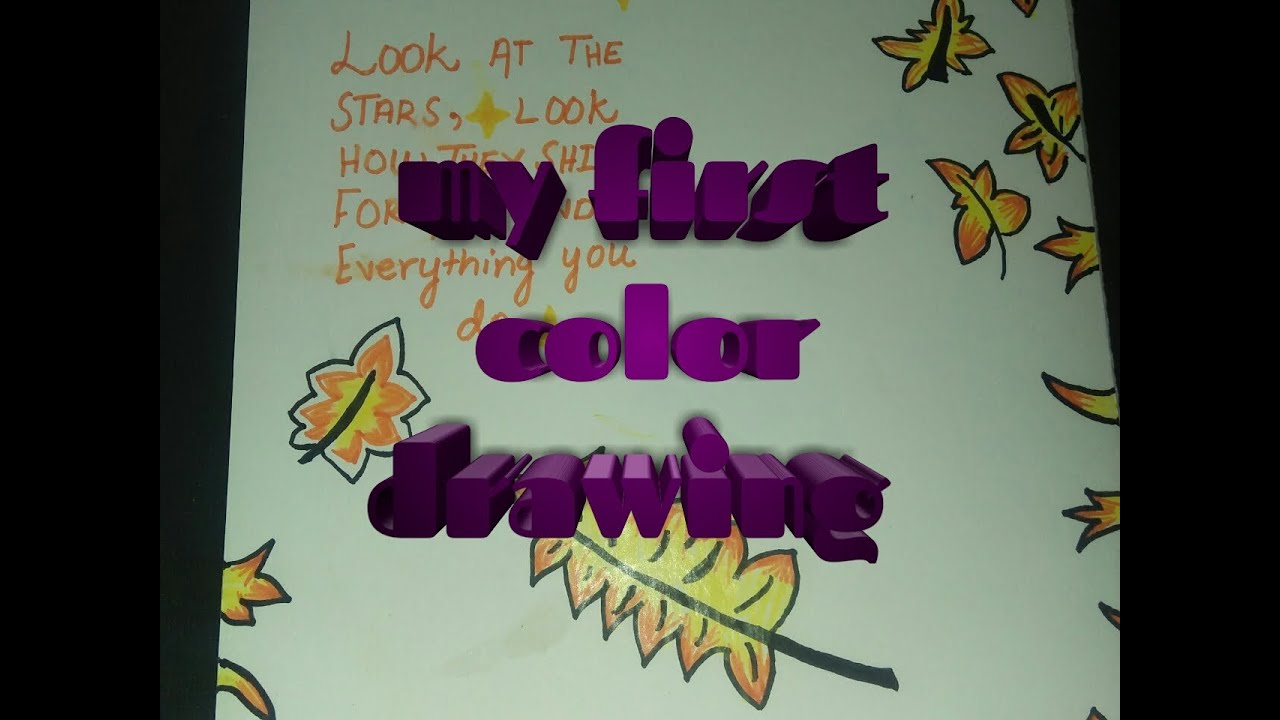 Look AT THE
STARS, LOOK
HOW THEY
FOR
Everything you
do
my first
color
drawing